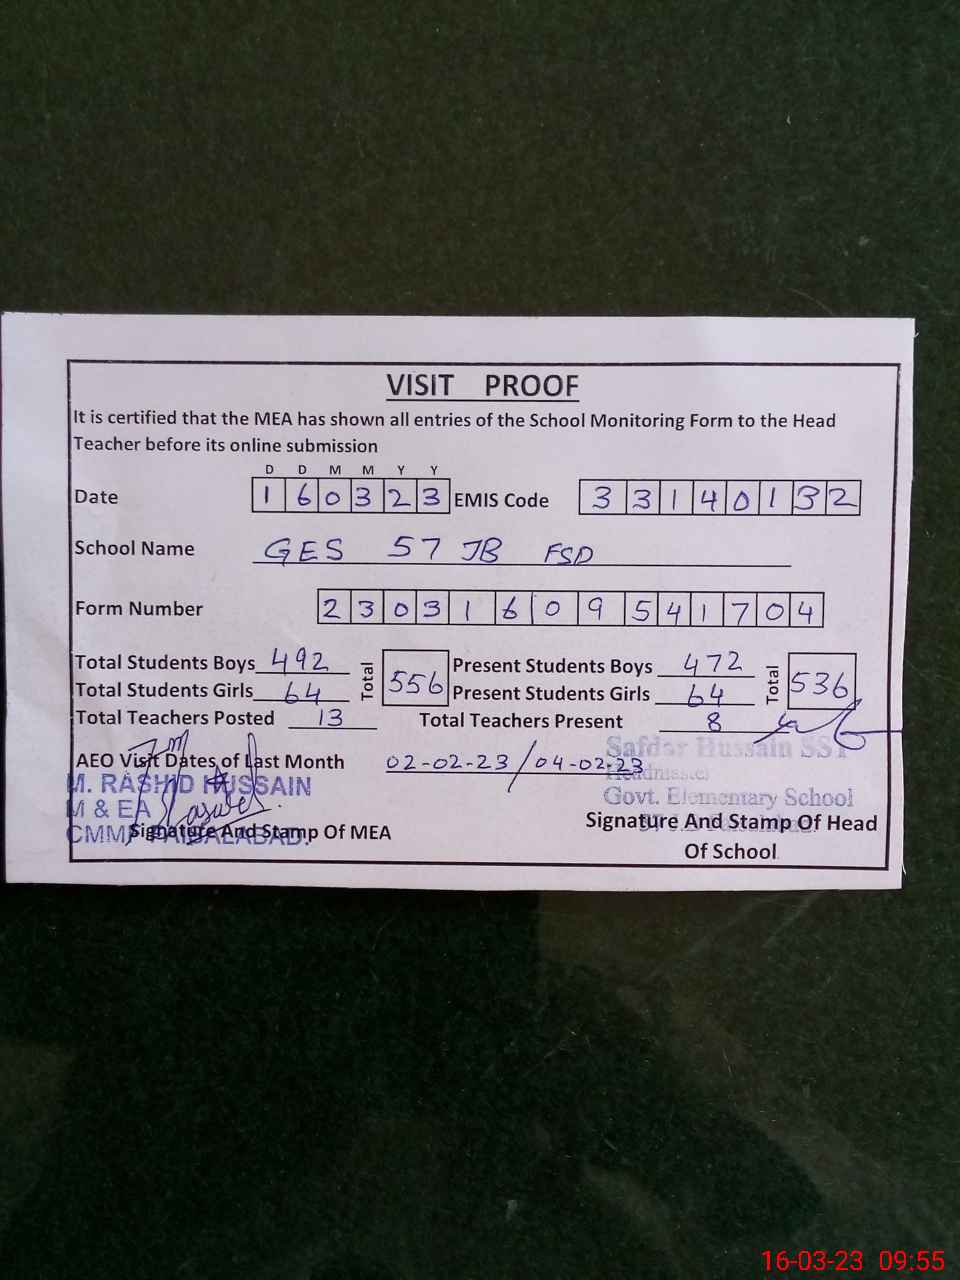 VISIT PROOF
It is certified that the MEA has shown all entries of the School Monitoring Form to the Head
Teacher before its online submission
D D M M Y Y
Date 1 6 0 3 2 3 EMIS Code 3 3 1 4 0 1 3 2
School Name GES 57 JB FSD
Form Number 2 3 0 3 1 6 0 9 5 4 1 7 0 4
Total Students Boys 492 Total 556 Present Students Boys 472 Total 536
Total Students Girls 64 Present Students Girls 64
Total Teachers Posted 13 Total Teachers Present 8
AEO Visit Dates of Last Month 02-02-23/04-02-23
Safdar Hussain SST
Headmaster
Govt. Elementary School
M. RASHID HUSSAIN
M & EA
CMMF FAISALABAD.
Signature And Stamp Of MEA
Signature And Stamp Of Head
Of School
16-03-23 09:55